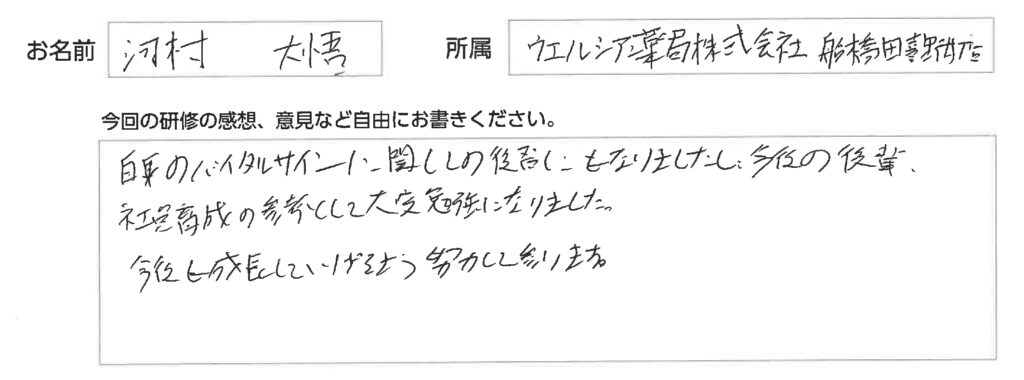 お名前 河村 大悟 所属 ウエルシア薬局株式会社 船橋田喜野井店
今回の研修の感想、意見など自由にお書きください。
自身のバイタルサインに関しての復習にもなりましたし、今後の後輩、
社員育成の参考として大変勉強になりました。
今後も成長していけるよう努力して参ります。